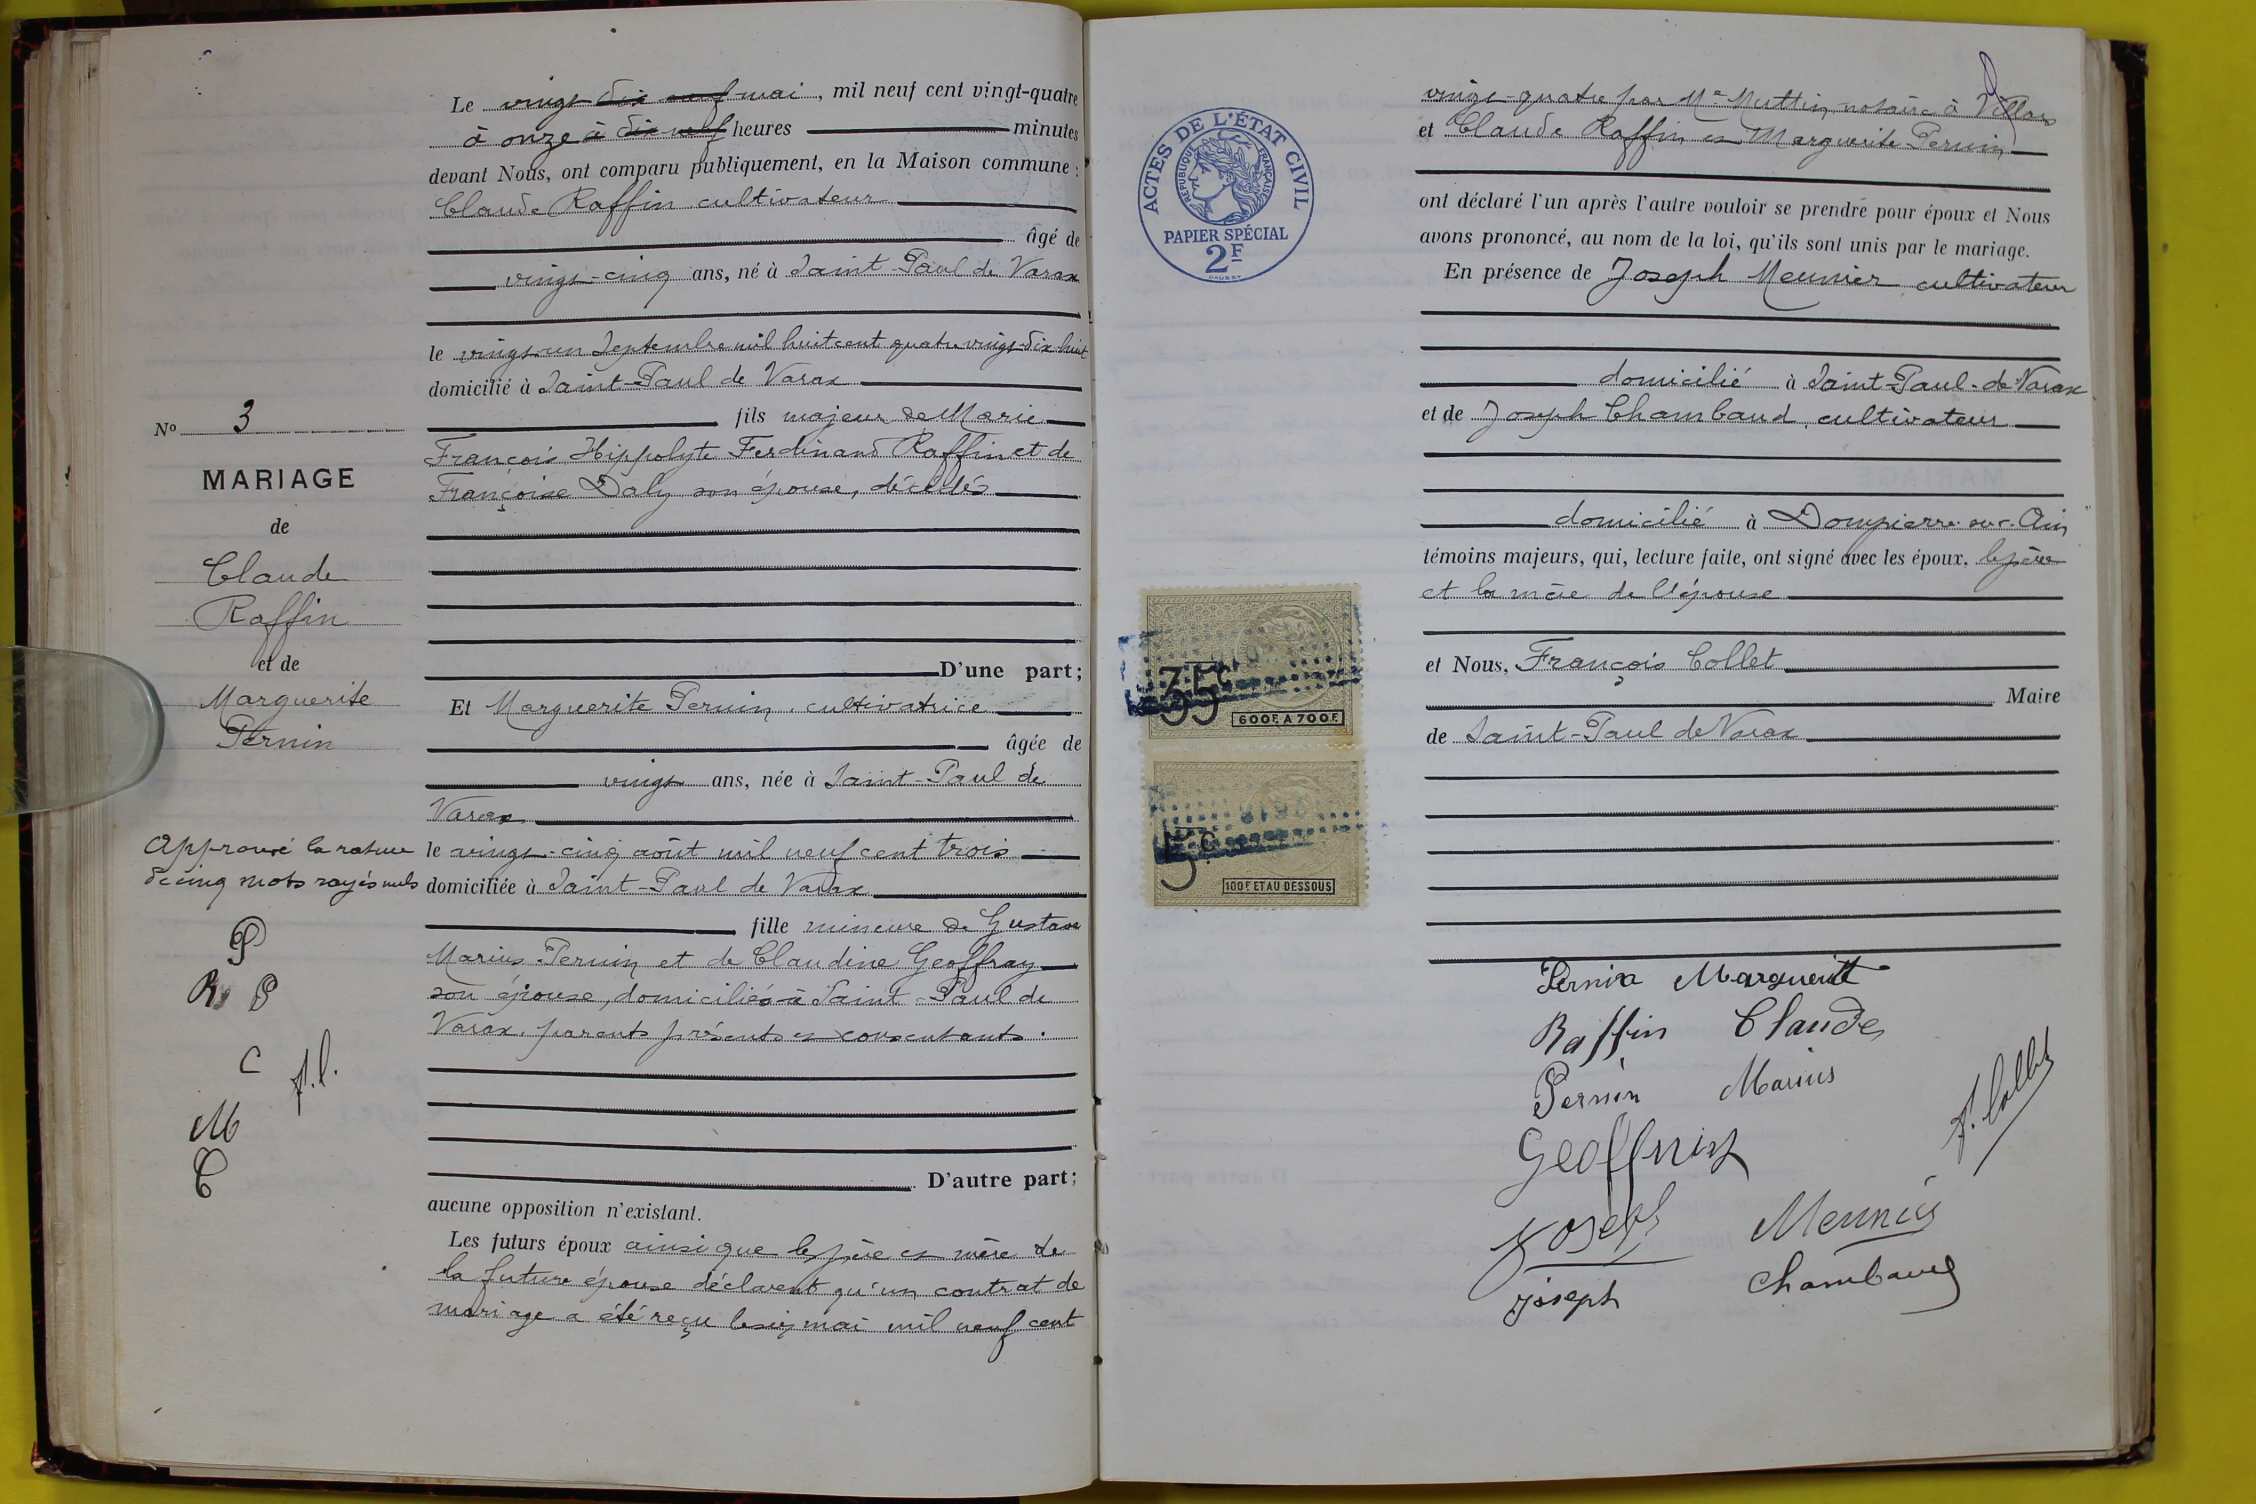 Le vingt dix neuf mai, mil neuf cent vingt-quatre
à onze à dix neuf heures minutes
devant Nous, ont comparu publiquement, en la Maison commune :
Claude Raffin cultivateur
âgé de
vingt-cinq ans, né à Saint Paul de Varax
le vingt-un Septembre mil huit cent quatre vingt-dix huit
domicilié à Saint-Paul de Varax
fils majeur de Marie
François Hippolyte Ferdinand Raffin et de
Françoise Daly son épouse, décédés
D'une part;
Nº 3
MARIAGE
de
Claude
Raffin
et de
Marguerite
Pernin
Et Marguerite Pernin, cultivatrice
âgée de
vingt ans, née à Saint-Paul de
Varax
le vingt-cinq août mil neuf cent trois
domiciliée à Saint-Paul de Varax
fille mineure de Gustave
Marius Pernin et de Claudine Geoffray
son épouse, domiciliés à Saint-Paul de
Varax, parents présents et consentants.
D'autre part;
Approuvé la rature
de cinq mots rayés nuls
P
R P
C f.C.
M
C
aucune opposition n'existant.
Les futurs époux ainsi que les père et mère de
la future épouse déclarent qu'un contrat de
mariage a été reçu le six mai mil neuf cent
ACTES DE L'ÉTAT CIVIL
RÉPUBLIQUE FRANÇAISE
PAPIER SPÉCIAL
2F
vingt-quatre par Me Muttin notaire à Villars
et Claude Raffin et Marguerite Pernin
ont déclaré l'un après l'autre vouloir se prendre pour époux et Nous
avons prononcé, au nom de la loi, qu'ils sont unis par le mariage.
En présence de Joseph Meunier cultivateur
domicilié à Saint-Paul-de Varax
et de Joseph Chambaud, cultivateur
domicilié à Dompierre sur Ain
témoins majeurs, qui, lecture faite, ont signé avec les époux, le père
et la mère de l'épouse
35c
600F. A 700F.
5c
100F ET AU DESSOUS
et Nous, François Collet
Maire
de Saint-Paul de Varax
Pernin Marguerite
Raffin Claude
Pernin Marius
f. Collet
Joseph Meunier
Joseph Chambaud